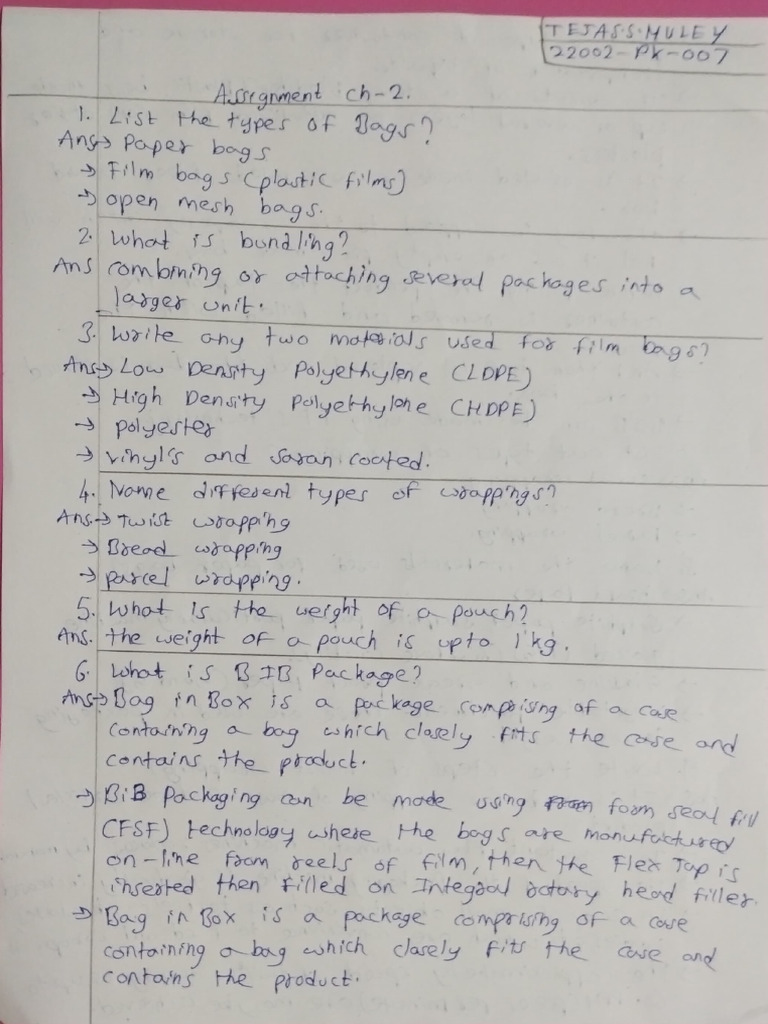 TEJAS.S.MULEY
22002-PK-007
Assignment ch-2.
1. List the types of Bags?
Ans→ Paper bags
→ Film bags (plastic films)
→ open mesh bags.
2. What is bundling?
Ans combining or attaching several packages into a
larger unit.
3. Write any two materials used for film bags?
Ans→ Low Density Polyethylene (LDPE)
→ High Density Polyethylene (HDPE)
→ polyester
→ vinyl's and saran coated.
4. Name different types of wrappings?
Ans.→ Twist wrapping
→ Bread wrapping
→ parcel wrapping.
5. What is the weight of a pouch?
Ans. the weight of a pouch is upto 1 kg.
6. What is BIB Package?
Ans→ Bag in Box is a package comprising of a case
containing a bag which closely fits the case and
contains the product.
→ BiB Packaging can be made using form seal fill
(FSF) technology where the bags are manufactured
on-line from reels of film, then the Flex Tap is
inserted then filled on Integral rotary head filler.
→ Bag in Box is a package comprising of a case
containing a bag which closely fits the case and
contains the product.